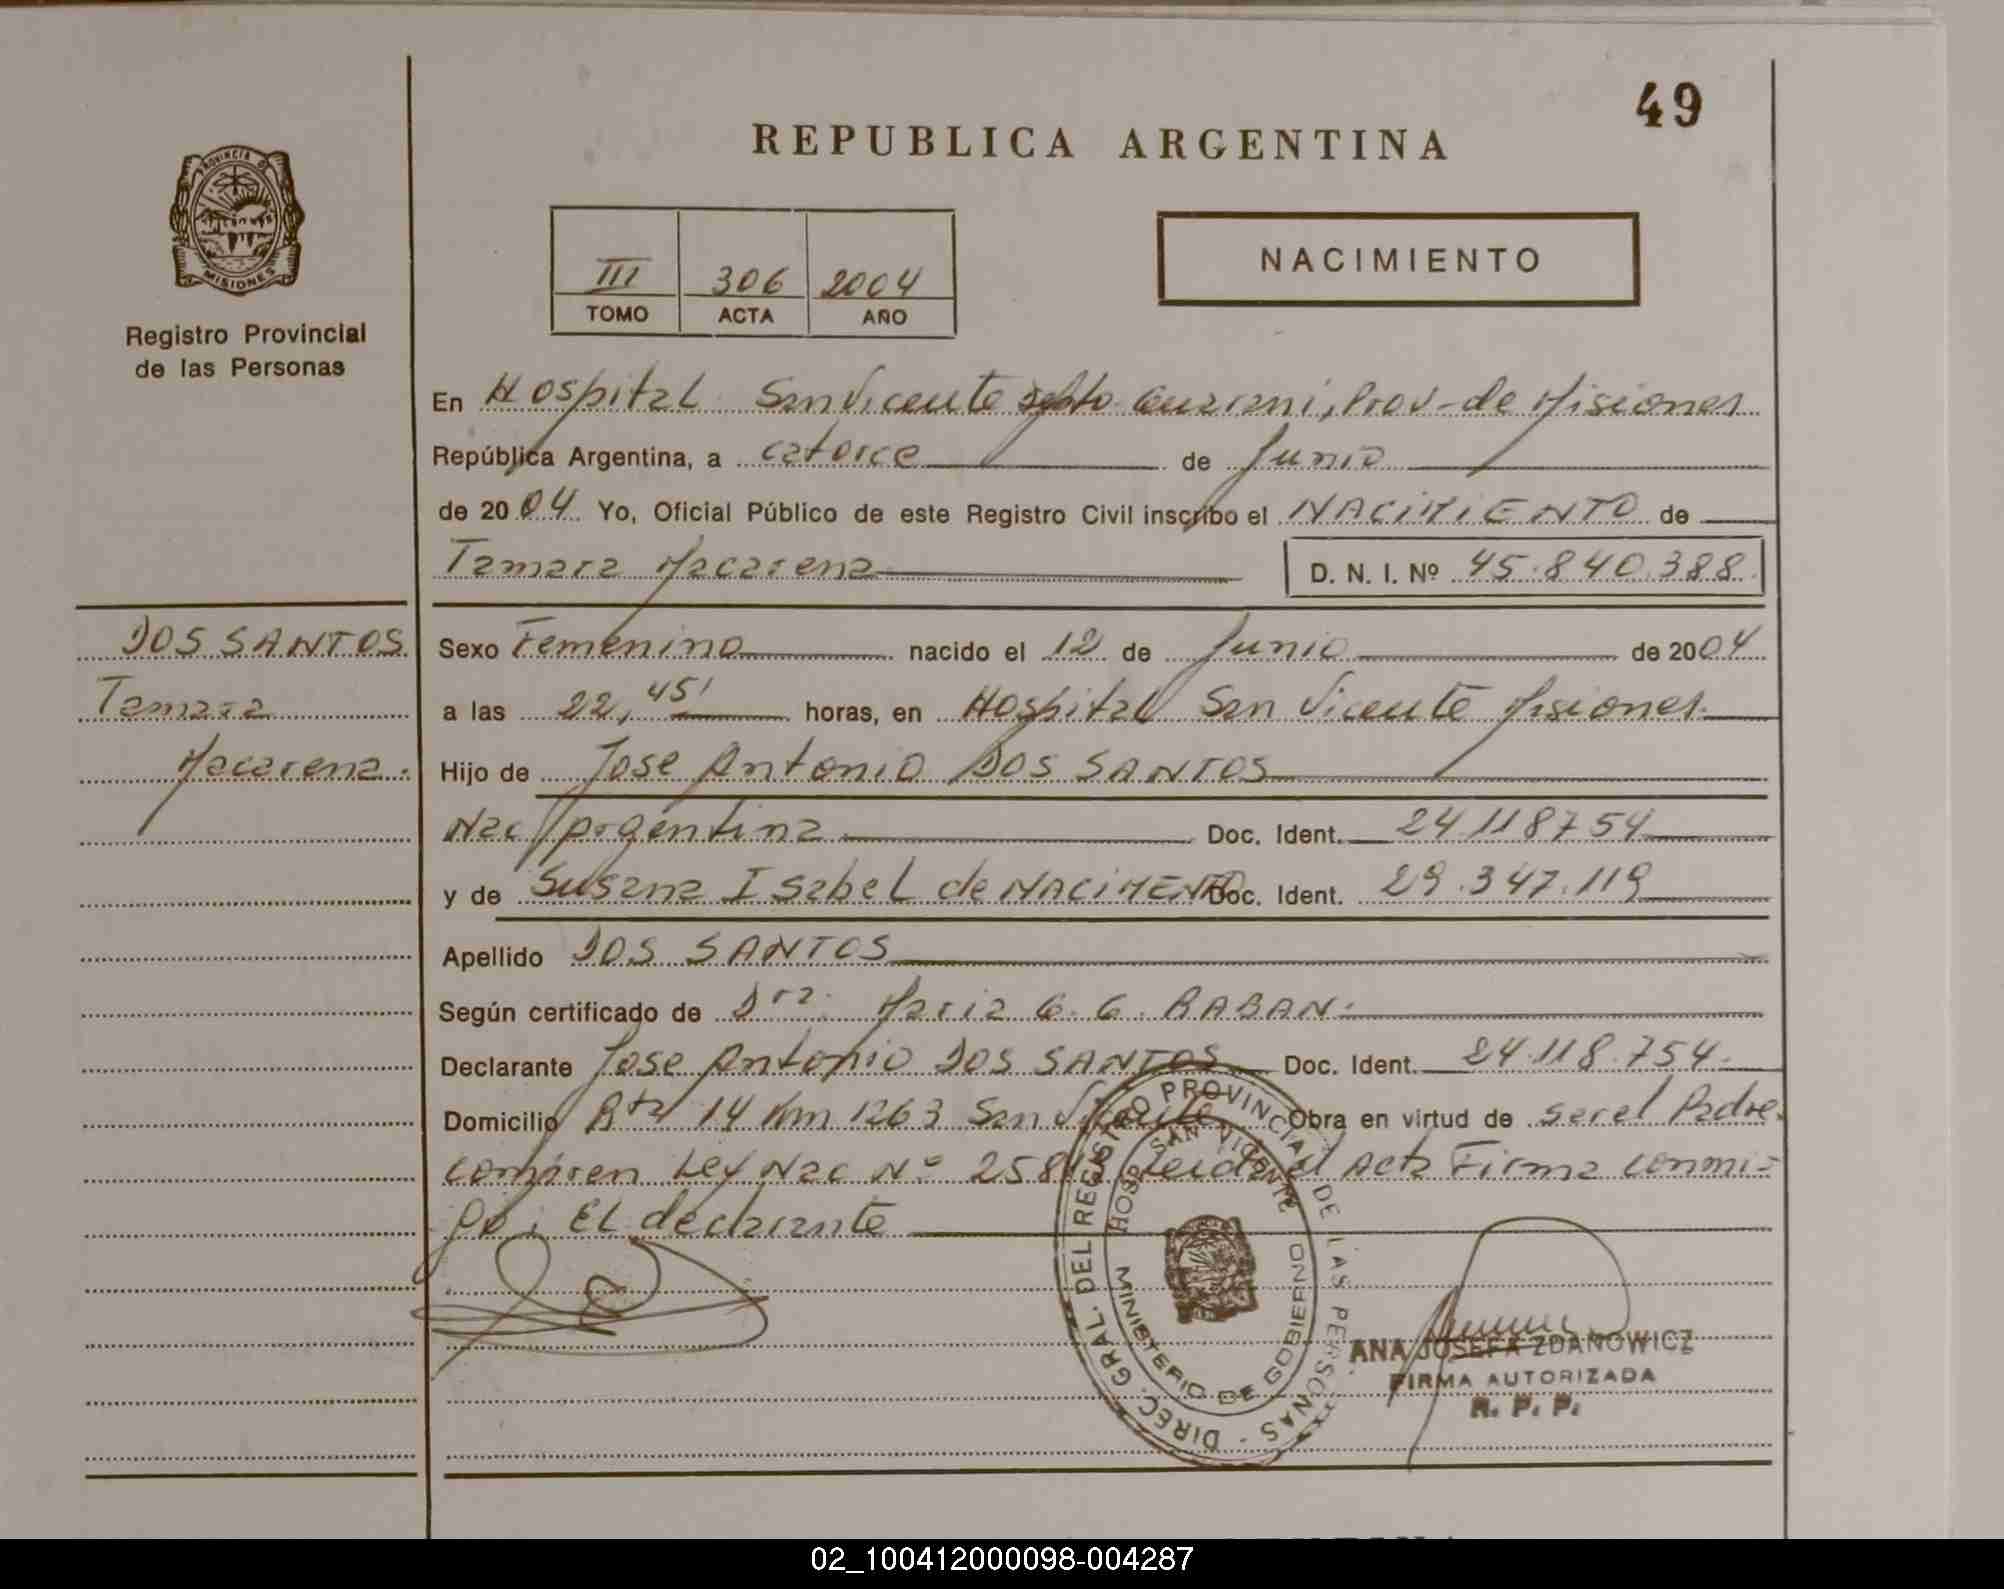 49
REPUBLICA ARGENTINA
PROVINCIA DE
MISIONES
Registro Provincial
de las Personas
III 306 2004
TOMO ACTA AÑO
NACIMIENTO
En Hospital San Vicente Dpto Guarani, Prov-de Misiones
República Argentina, a catorce de Junio
de 2004 Yo, Oficial Público de este Registro Civil inscribo el NACIMIENTO de
Tamara Macarena D. N. I. Nº 45.840.388
DOS SANTOS
Tamara
Macarena.
Sexo Femenino nacido el 12 de Junio de 2004
a las 22,45' horas, en Hospital San Vicente Misiones.
Hijo de Jose Antonio DOS SANTOS
Nac Argentina Doc. Ident. 24.118754
y de Susana Isabel de NACIMENTO Doc. Ident. 29.347.119
Apellido DOS SANTOS
Según certificado de Dra. Maria G. G. RABAN.
Declarante Jose Antonio DOS SANTOS Doc. Ident. 24.118.754.
Domicilio Rta 14 Km 1263 San Vicente Obra en virtud de ser el Padre
Ley Nac Nº Acta Firma conmi-
go: El declarante
DIREC. GRAL. DEL REGISTRO PROVINCIAL DE LAS PERSONAS -
HOSP SAN VICENTE
MINISTERIO DE GOBIERNO
ANA JOSEFA ZDANOWICZ
FIRMA AUTORIZADA
R. P. P.
02_100412000098-004287